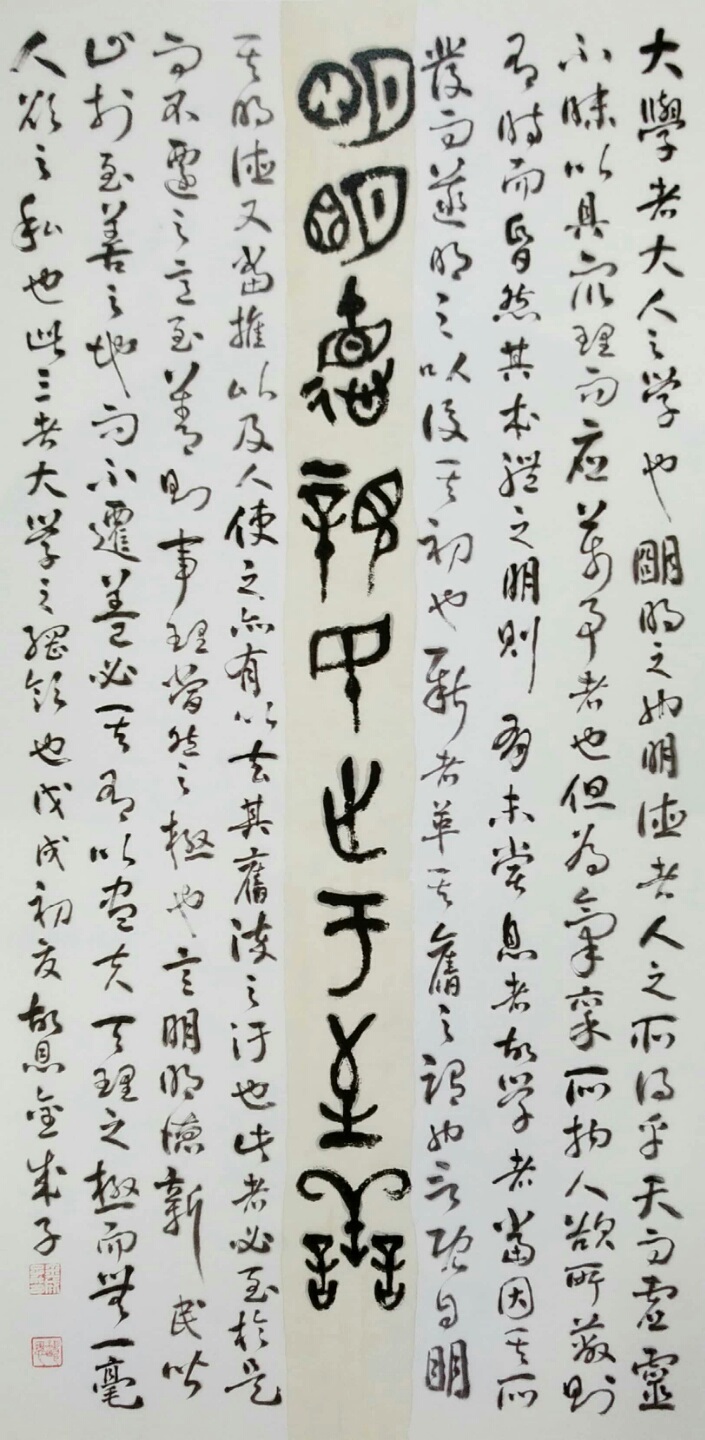 大學者大人之学也明明之也明德者人之所得乎天而虚靈
不昧以具衆理而應萬事者也但為氣稟所拘人欲所蔽則
有時而昏然其本體之明則有未嘗息者故学者當因其所
發而遂明之以復其初也新者革其舊之謂也言既自明
明明德新民止于至善
其明德又當推以及人使之亦有以去其舊染之汙也止者必至於是
而不遷之意至善則事理當然之極也言明明德新民皆
止於至善之地而不遷蓋必其有以盡夫天理之極而無一毫
人欲之私也此三者大学之綱領也戊戌初夏